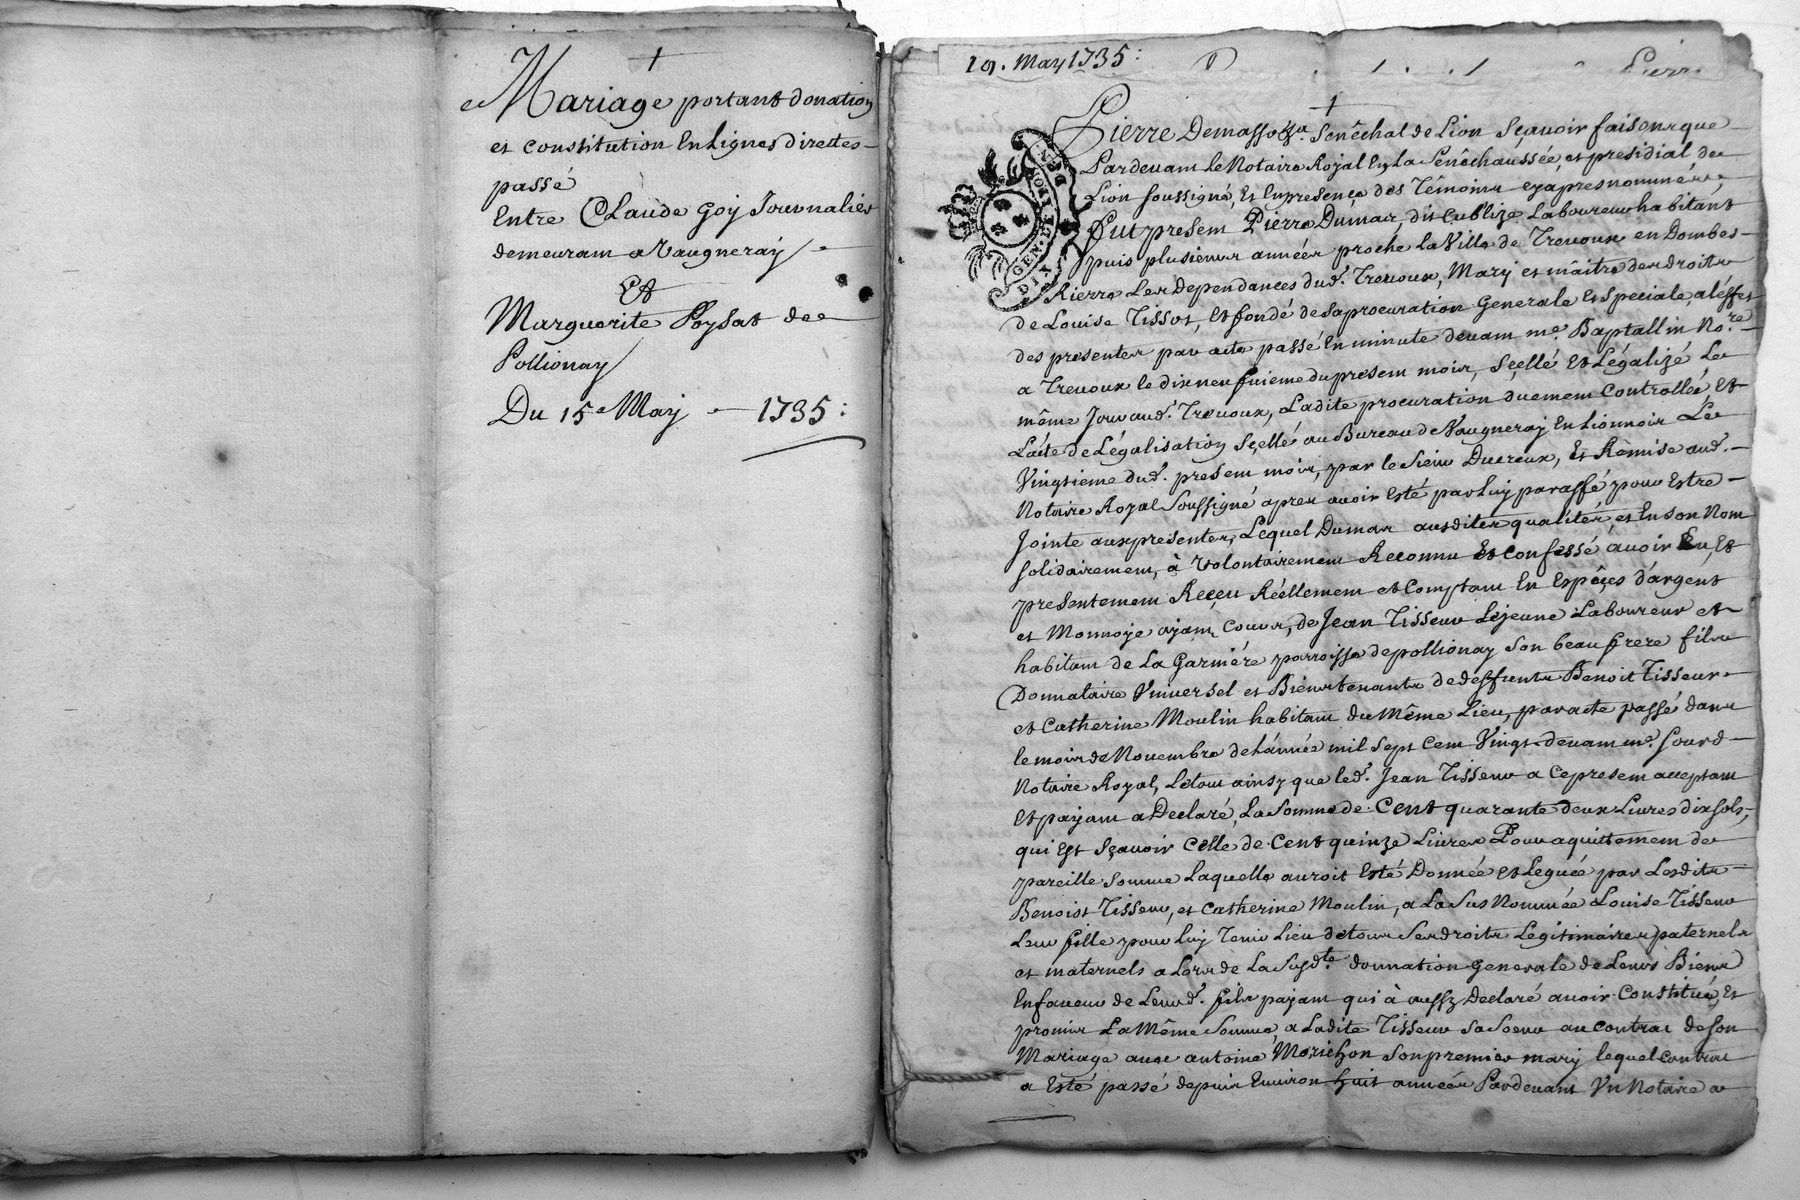 Mariage portant donation
et constitution En Lignes directes
passé
Entre Claude Goÿ Journalier
demeurant a Vaugneraÿ
Et
Marguerite Poysat de
Pollionay
Du 15e Maÿ 1735:
19. May 1735:
Pierre
Pierre Demasso Senêchal de Lion Sçavoir faisons que
Pardevant le Notaire Royal En La Senêchaussée, et presidial de
Lion soussigné, Et En presence des Têmoins cy apres nommés
Fut present Pierre Dumas, dit Laboureur habitant
puis plusieurs années proche la Ville de Trevoux en Dombes
Rierre Les Dependances dud. Trevoux, Marÿ et maître des droits
de Louise Tissot, Et fondé de Sa procuration Generale Et Speciale, a l'effet
des presentes par acte passé En minute devant me. Baptallin No.re
a Trevoux le dix neufuieme du present mois, Sçellé Et Légalizé Le
même Jour aud. Trevoux, Ladite procuration düement Controllée, Et
L'acte de Légalisation Sçellé au Bureau de Vaugneraÿ En Lionnois Le
Vingtieme dud. present mois, par le Sieur Ducreux, Et Rêmise aud.
Notaire Royal Soussigné apres avoir Esté par Luy paraffé pour Estre
Jointe aux presentes, Lequel Dumas ausdites qualités, et En Son Nom
solidairement, à Volontairement Reconnu Et Confessé avoir Eu, Et
presentement Reçeu Réellement et Comptant En Espêçes d'argent
et Monnoÿe aÿant Cours, de Jean Tisseur Lejeune Laboureur et
habitant de La Garniére parroisse de pollionay Son beau frere fils
Donnataire Vniversel et Biens tenants de deffunts Benoit Tisseur
et Catherine Moulin habitans du Même Lieu, par acte passé dans
le mois de Novembre de L'année mil Sept Cent Vingt devant me. Gourd
Notaire Royal, Le tout ainsy que led. Jean Tisseur a Ce present acceptant
Et paÿant a Declaré, La Somme de Cent quarante deux Livres dix sols,
qui Est Sçavoir Celle de Cent quinze Livres Pour aquittement de
pareille Somme Laquelle auroit Esté Donnée et Leguée par Lesdits
Benoist Tisseur, et Catherine Moulin, a La Sus Nommée Louise Tisseur
Leur fille pour Luy Tenir Lieu de tous Ses droits Legitimaires paternels
et maternels a Lors de La Susd.te donnation Generale de Leurs Biens
En faveur de Leurd. fils paÿant qui à aussy Declaré avoir Constitué, Et
promis La Même Somme, a Ladite Tisseur Sa Soeur au Contrat de Son
Mariage avec antoine Morichon Son premier marÿ lequel Contrat
a Esté passé depuis Environ huit années Pardevant Vn Notaire a